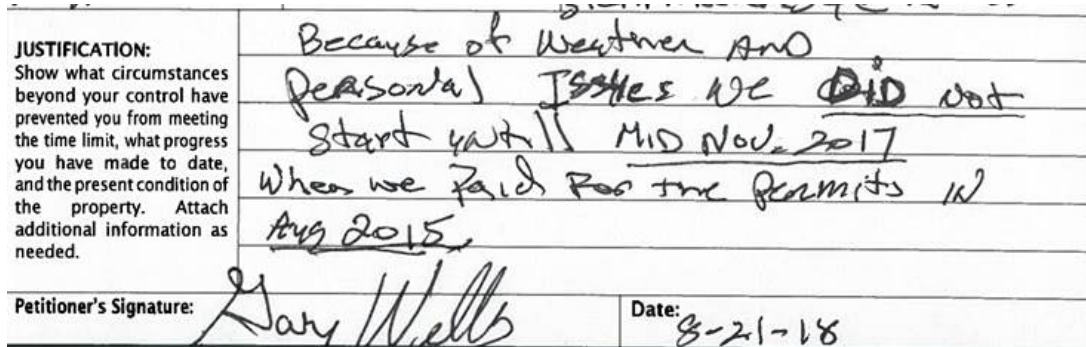 JUSTIFICATION:
Show what circumstances
beyond your control have
prevented you from meeting
the time limit, what progress
you have made to date,
and the present condition of
the property. Attach
additional information as
needed.
Because of Weather AND
Personal Issues we DiD Not
Start untill MiD Nov. 2017
When we Paid For the Permits IN
Aug 2015.
Petitioner's Signature: Gary Wells
Date: 8-21-18